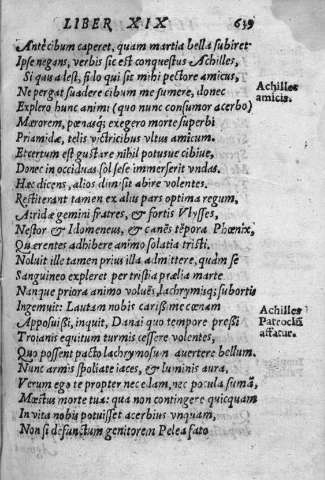 LIBER XIX 639
Antè cibum caperet, quam martia bella subiret.
Ipse negans, verbis sic est conquestus Achilles,
Si qua salest, si lo qui sic mihi pectore amicus,
Ne pergat suadere cibum me sumere, donec
Achilles
amicis.
Explero hunc animi (quo nunc consumor acerbo)
Mærorem, pœnasq; exegero morte superbi
Priamidæ, telis victricibus vltus amicum.
Et certum est gustare nihil potusue cibiue,
Donec in occiduas sol sese immerserit vndas.
Hæc dicens, alios dimisit abire volentes.
Restiterant tamen ex aliis pars optima regum,
Atridæ gemini fratres, & fortis Vlysses,
Nestor & Idomeneus, & canẽs tẽpora Phœnix,
Quærentes adhibere animo solatia tristi.
Noluit ille tamen prius illa admittere, quàm se
Sanguineo expleret per tristia prælia marte
Nanque priora animo voluẽs, lachrymisq; subortis
Ingemuit: Lautam nobis cariss. me cœnam
Achilles
Patroclũ
affatur.
Apposuisti, inquit, Danai quo tempore pressi
Troianis equitum turmis cessere volentes,
Quo possent pacto lachrymosum auertere bellum.
Nunc armis spoliate iaces, & luminis aura,
Verum ego te propter nec edam, nec pocula sumã,
Mœstus morte tua: qua non contingere quicquam
In vita nobis potuisset acerbius vnquam,
Non si defunctum genitorem Pelea fato